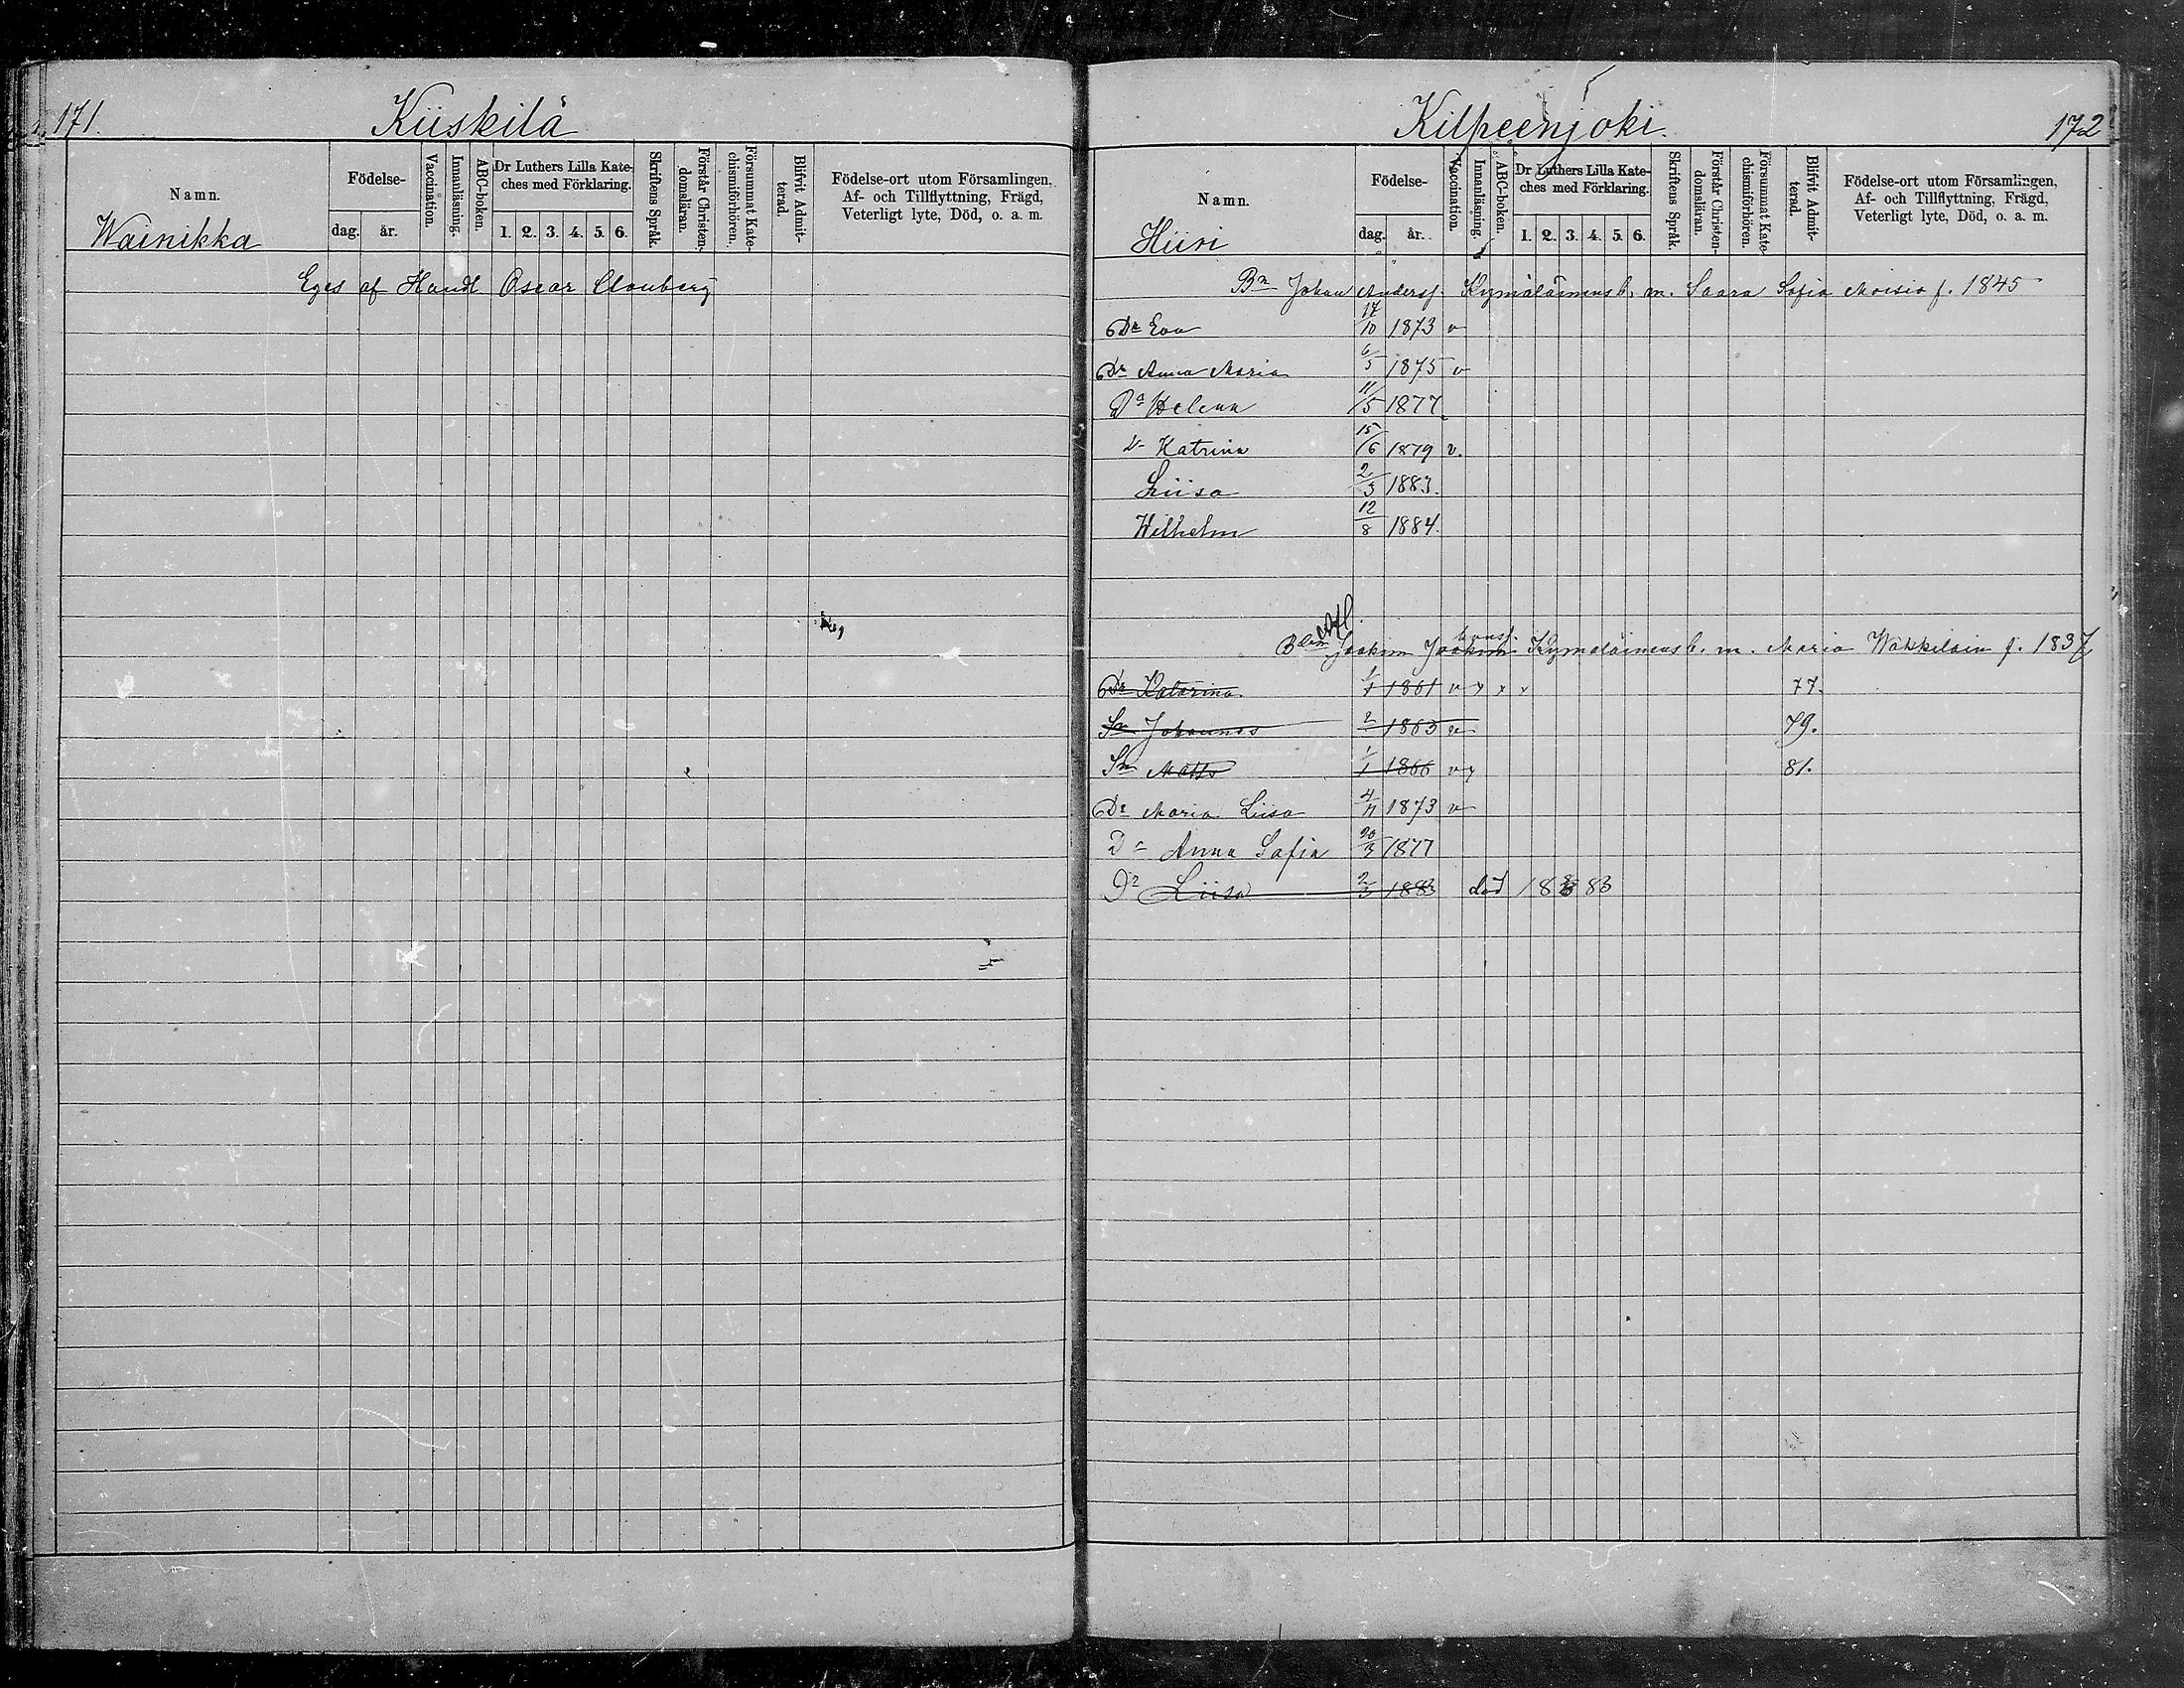 171.
Kiiskilä
Namn.
Wainikka
Födelse-
dag. år.
Vaccination.
Innanläsning.
ABC-boken.
Dr Luthers Lilla Kate-
ches med Förklaring.
1. 2. 3. 4. 5. 6.
Skriftens Språk.
Förstår Christen-
domsläran.
Försummat Kate-
chismiförhören.
Blifvit Admit-
terad.
Födelse-ort utom Församlingen,
Af- och Tillflyttning, Frägd,
Veterligt lyte, Död, o. a. m.
Eges af Handl Oscar Clouberg
Kilpeenjoki.
172
Namn.
Hiiri
Födelse-
dag. år.
Vaccination.
Innanläsning.
ABC-boken.
Dr Luthers Lilla Kate-
ches med Förklaring.
1. 2. 3. 4. 5. 6.
Skriftens Språk.
Förstår Christen-
domsläran.
Försummat Kate-
chismiförhören.
Blifvit Admit-
terad.
Födelse-ort utom Församlingen,
Af- och Tillflyttning, Frägd,
Veterligt lyte, Död, o. a. m.
Bn Johan Andersf. Kymäläinens b. m. Saara Sofia Moisio f. 1845
Dr Eva 17/10 1873 v
Dr Anna Maria 6/5 1875 v
Dr Helena 11/5 1877
Dr Katrina 15/6 1879 v.
Liisa 2/3 1883.
Wilhelm 12/8 1884.
Joakim Kymäläinens b. m. Maria f. 1837
Dr Katarina 1/1 1861 v x x v 77.
Sn Johannes 2 1863 v 79.
Sn Matts 1/1 1866 v x 81.
Dr Maria Liisa 4/11 1873 v
Dr Anna Sofia 20/3 1877
Dr Liisa 2/3 1883 död 18 83